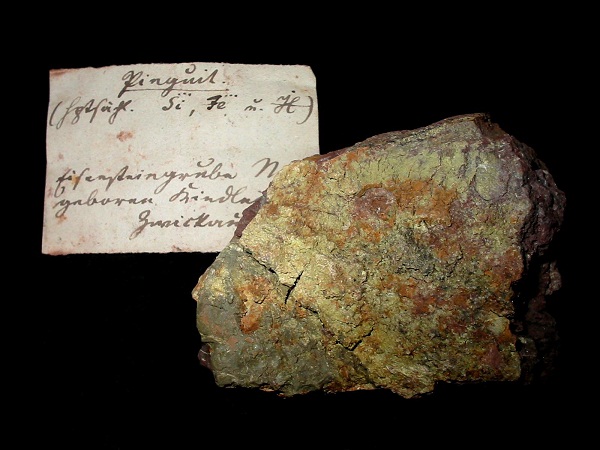 Pinguit.
(Hptsächl. S̈i, F̈e u. Ḧ)
Eisensteingrube N
geboren Kindle
Zwickau